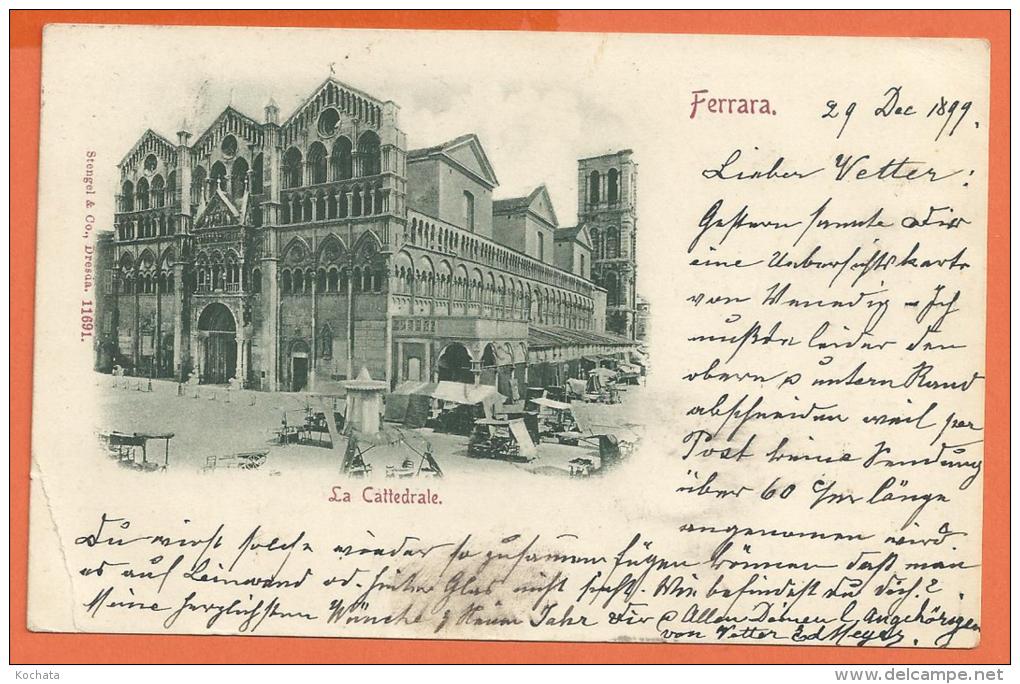 Ferrara.
29 Dec 1899.
Lieber Vetter:
Gestern sandte Dir
eine Uebersichtskarte
von Venedig – Ich
mußte leider den
obern & untern Rand
abschneiden weil per
Post keine Sendung
über 60 c/m länge
angenommen wird.
Stengel & Co., Dresda. 11691.
La Cattedrale.
Du wirst solche wieder so zusammen fügen können daß man
es auf Leinwand od. hinter Glas nicht sieht. Wie befindest du dich?
Meine herzlichsten Wünsche z Neuen Jahr dir & Allen Deinen l. Angehörigen
von Vetter Ed Meyer.
Kochata
delcampe.net